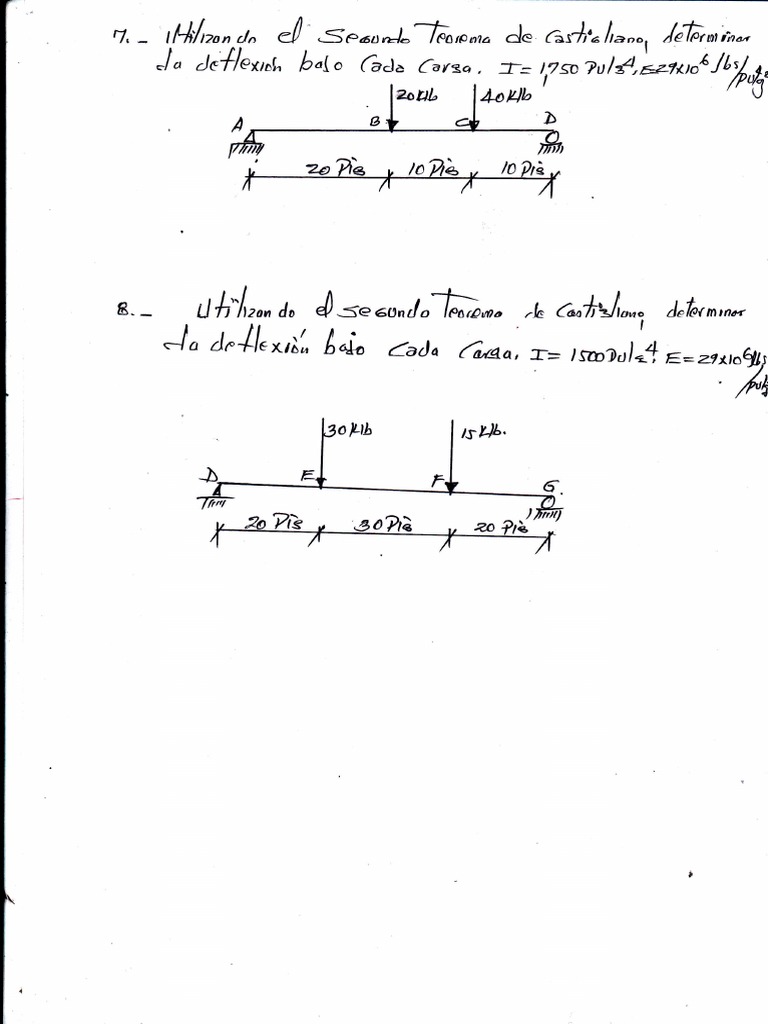 7.- Utilizando el Segundo Teorema de Castigliano, determinar
la deflexión bajo Cada Carga. I=1,750 Pulg4, E=29x10⁶ lbs/pulg²
20 Klb 40 Klb
A B C D
20 Pies 10 Pies 10 Pies
8.- Utilizando el segundo Teorema de Castigliano, determinar
la deflexión bajo Cada Carga. I= 1500 Pulg4. E=29x10⁶ lbs/pulg
30 Klb 15 Klb.
D E F G.
20 Pies 30 Pies 20 Pies